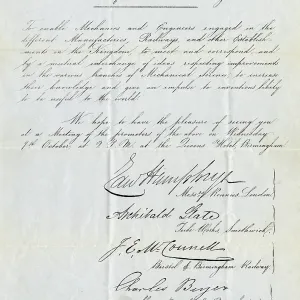 To enable Mechanics and Engineers engaged in the
different Manufactories, Railways, and other Establish-
ments in the Kingdom, to meet and correspond, and
by a mutual interchange of ideas respecting improvements
in the various branches of Mechanical Science, to increase
their knowledge and give an impulse to inventions likely
to be useful to the world.
We hope to have the pleasure of seeing you
at a Meeting of the promoters of the above on Wednesday
7th October, at P.M. at the Queens Hotel, Birmingham
Edwd Humphrys
Messrs Rennies, London
Archibald Slate
Tube Works, Smethwick
J. E. McConnell
Bristol & Birmingham Railway
Charles Beyer